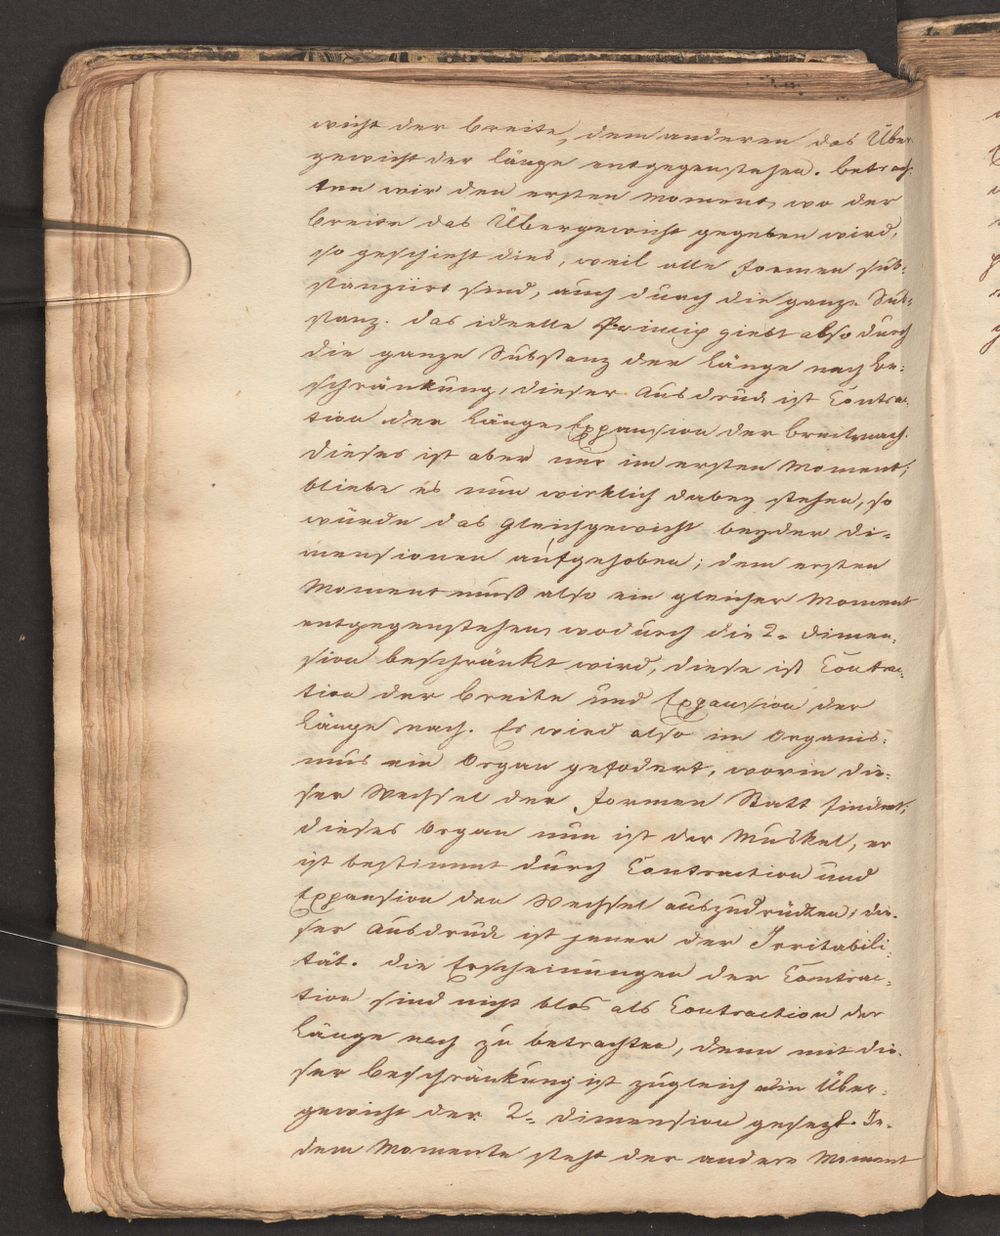 wicht der breite, dem anderen das Über
gewicht der länge entgegenstehen. betrach
ten wir den ersten Moment, wo der
breite das Übergewicht gegeben wird,
so geschieht dies, weil alle Formen sub-
stanziirt send, auch durch die ganze Sub-
stanz. das ideelle Princip giebt also durch
die ganze Substanz der länge nach be-
schränkung, dieser Ausdruck ist Contrac-
tion der Länge, Expansion der breite nach.
dieses ist aber nur im ersten Moment;
bliebe es nun wirklich dabey stehen, so
würde das gleichgewicht beyder di-
mensionen aufgehoben; dem ersten
Moment muß also ein gleicher Moment
entgegenstehen, wodurch die 2= dimen-
sion beschränkt wird, diese ist Contrac-
tion der breite und Expansion der
Länge nach. Es wird also im Organis-
mus ein Organ gefodert, worin die-
ser Wechsel der Formen Statt findet;
dieses Organ nun ist der Muskel, er
ist bestimmt durch Contraction und
Expansion den Wechsel auszudrücken; die-
ser Ausdruck ist jener der Irritabili-
tät. die Erscheinungen der Contrac-
tion sind nicht blos als Contraction der
Länge nach zu betrachten, denn mit die-
ser beschränkung ist zugleich ein Über-
gewicht der 2= dimension gesezt. Je-
dem Momente steht der andere Moment